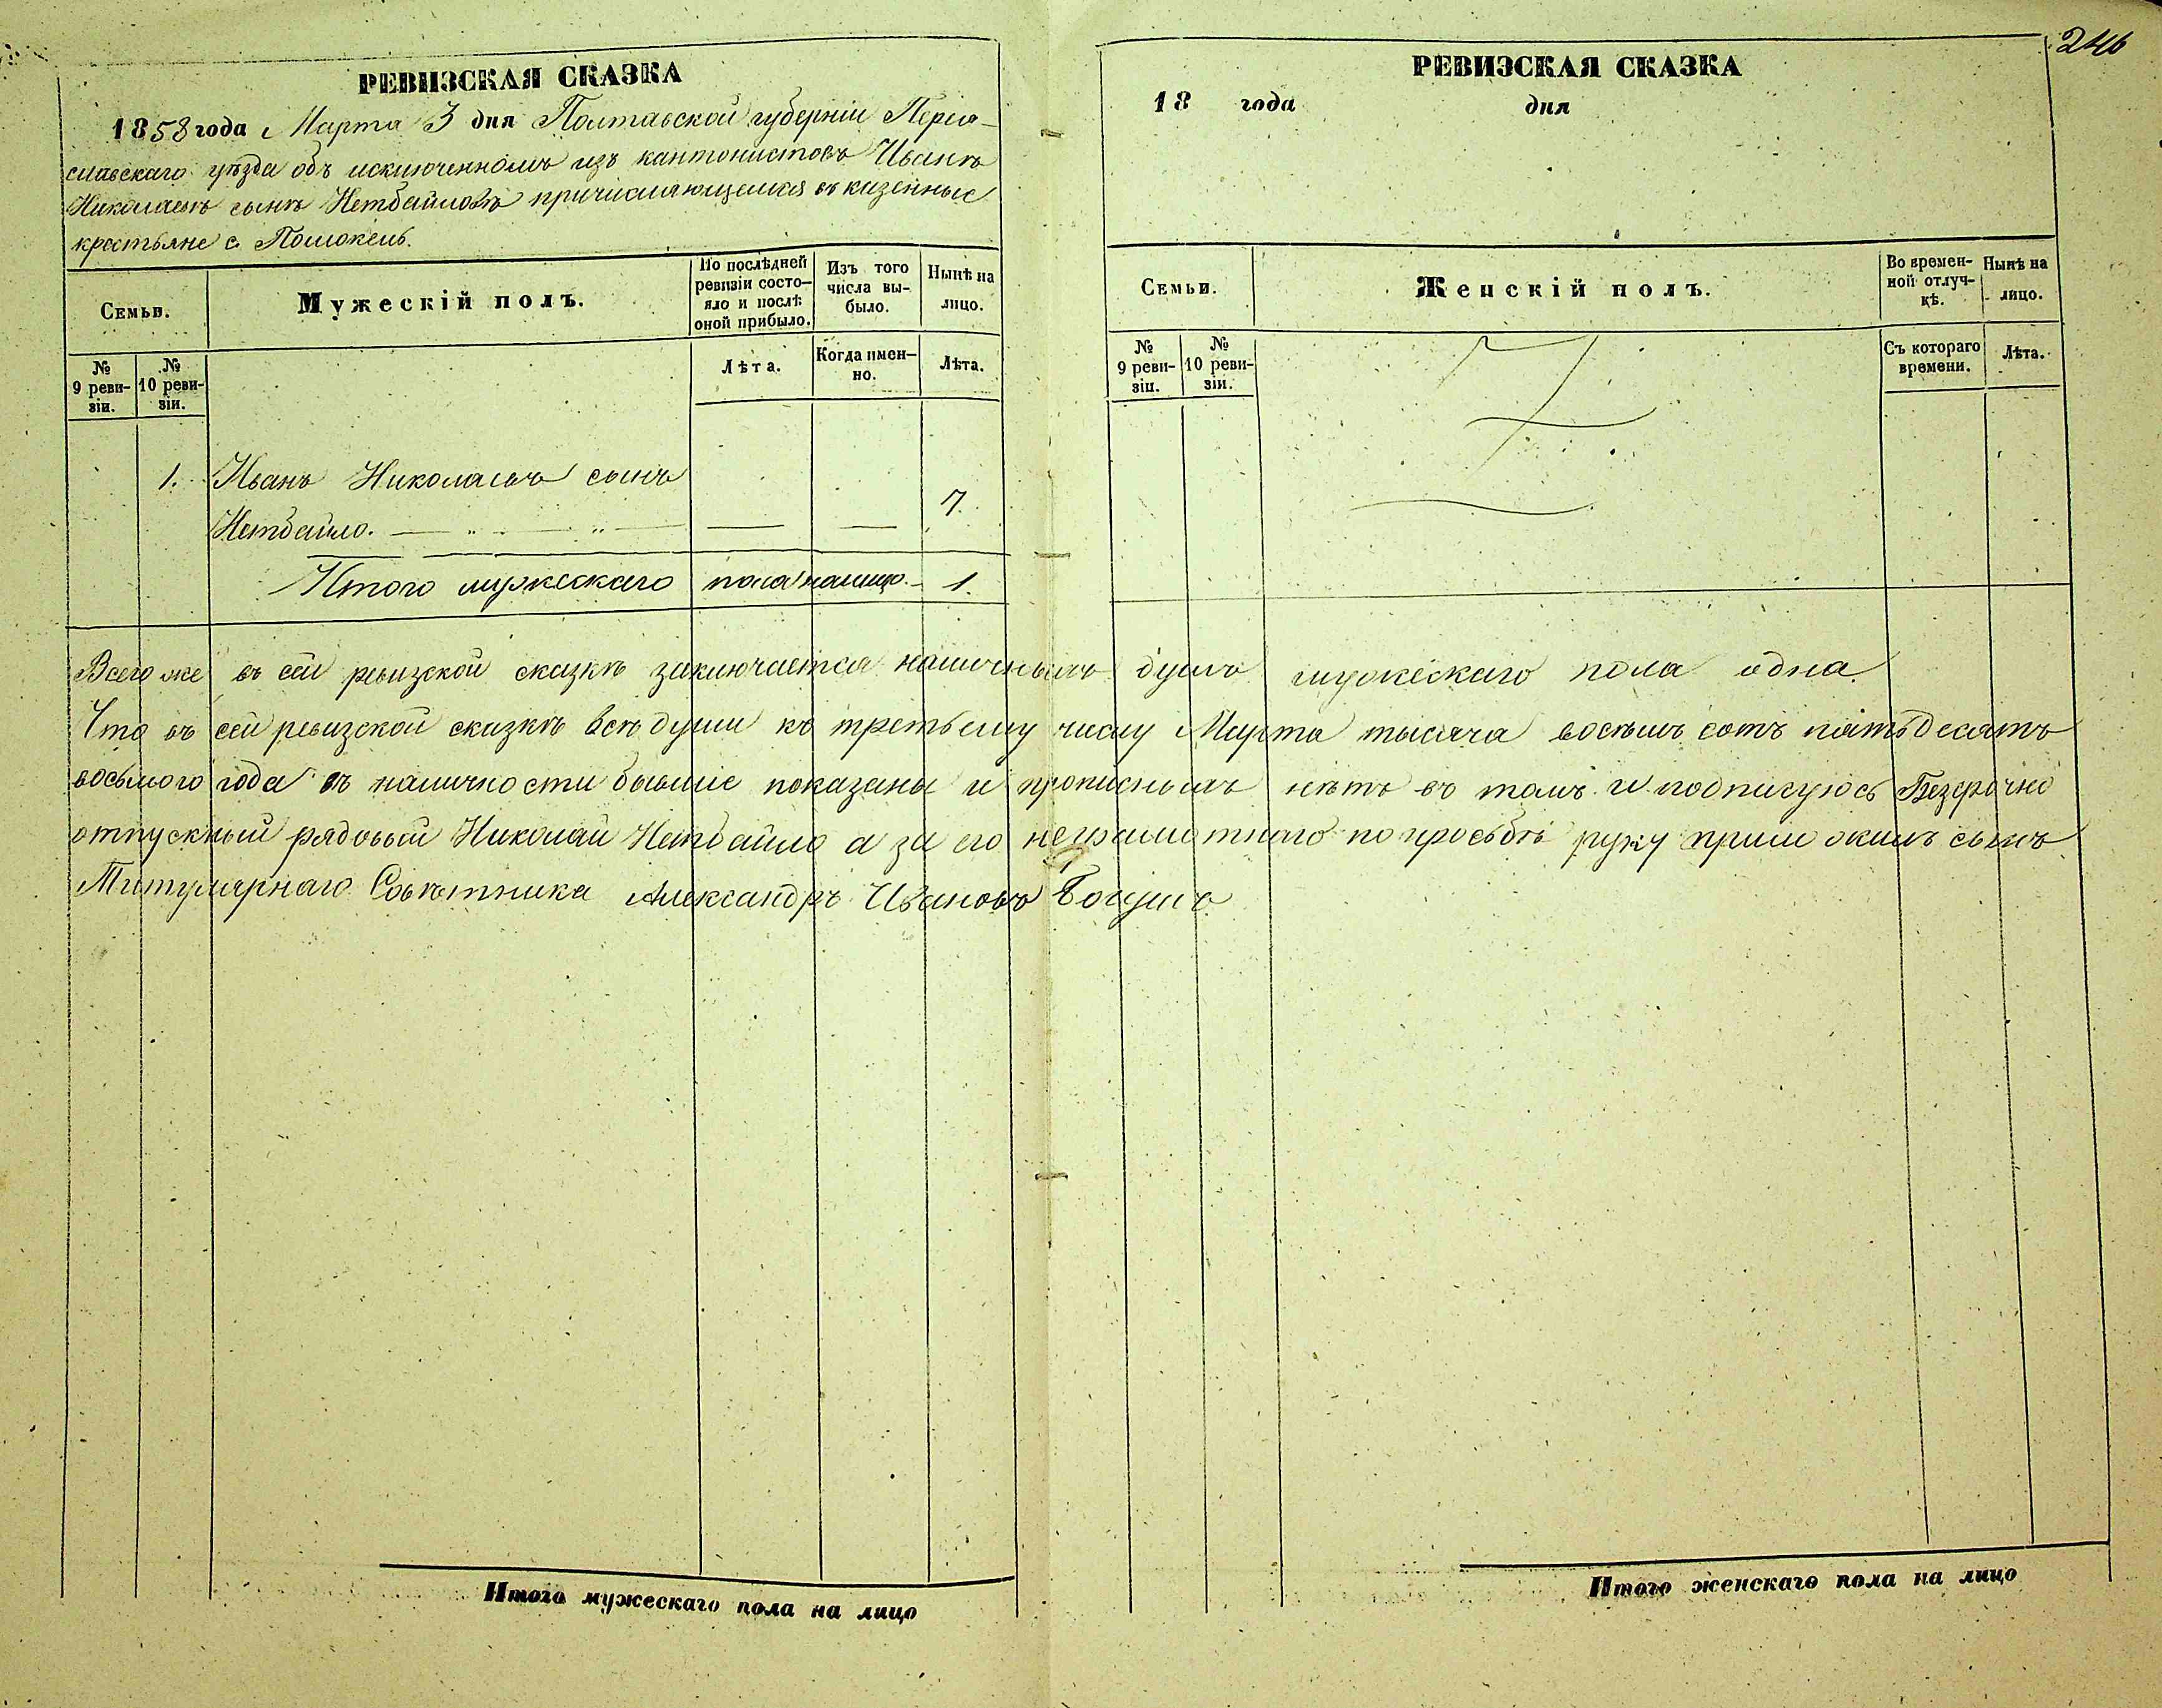 246
РЕВИЗСКАЯ СКАЗКА
1858 года Марта 3 дня Полтавской губерніи Перея-
славскаго уѣзда объ исключенномъ изъ кантонистовъ Иванѣ
Николаевѣ сынѣ Нетбайловѣ причисляющемся въ казенные
крестьяне с. Помоклень.
Семьи.
Мужескій полъ.
По послѣдней
ревизіи состо-
яло и послѣ
оной прибыло.
Изъ того
числа вы-
было.
Нынѣ на
лицо.
№
9 реви-
зіи.
№
10 реви-
зіи.
Лѣта.
Когда имен-
но.
Лѣта.
1. Иванъ Николаевъ сынъ
Нетбайло. 7.
Итого мужескаго пола налицо 1.
РЕВИЗСКАЯ СКАЗКА
18 года дня
Семьи.
Женскій полъ.
Во времен-
ной отлуч-
кѣ.
Нынѣ на
лицо.
№
9 реви-
зіи.
№
10 реви-
зіи.
Съ котораго
времени.
Лѣта.
Всего же въ сей ревизской сказкѣ заключается наличныхъ душъ мужескаго пола одна.
Что въ сей ревизской сказкѣ всѣ души къ третьему числу Марта тысяча восемь сотъ пятьдесятъ
восьмого года въ наличности бывшіе показаны и прописныхъ нѣтъ въ томъ и подписуюсь Безсрочно
отпускный рядовый Николай Нетбайло а за его неграмотнаго по просьбѣ руку приложилъ сынъ
Титулярнаго Совѣтника Александръ Ивановъ
Итого мужескаго пола на лицо
Итого женскаго пола на лицо